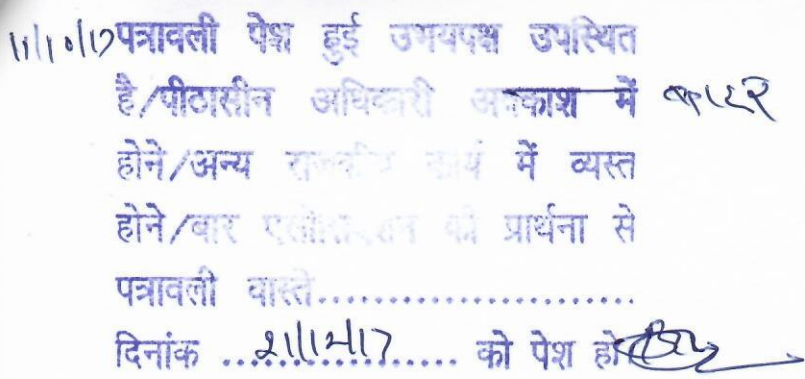 11/10/17 पत्रावली पेश हुई उभयपक्ष उपस्थित
है/पीठासीन अधिकारी अवकाश में बाहर
होने/अन्य राजकीय कार्य में व्यस्त
होने/बार एसोसिएशन की प्रार्थना से
पत्रावली वास्ते........................
दिनांक ....21/12/17.... को पेश हो